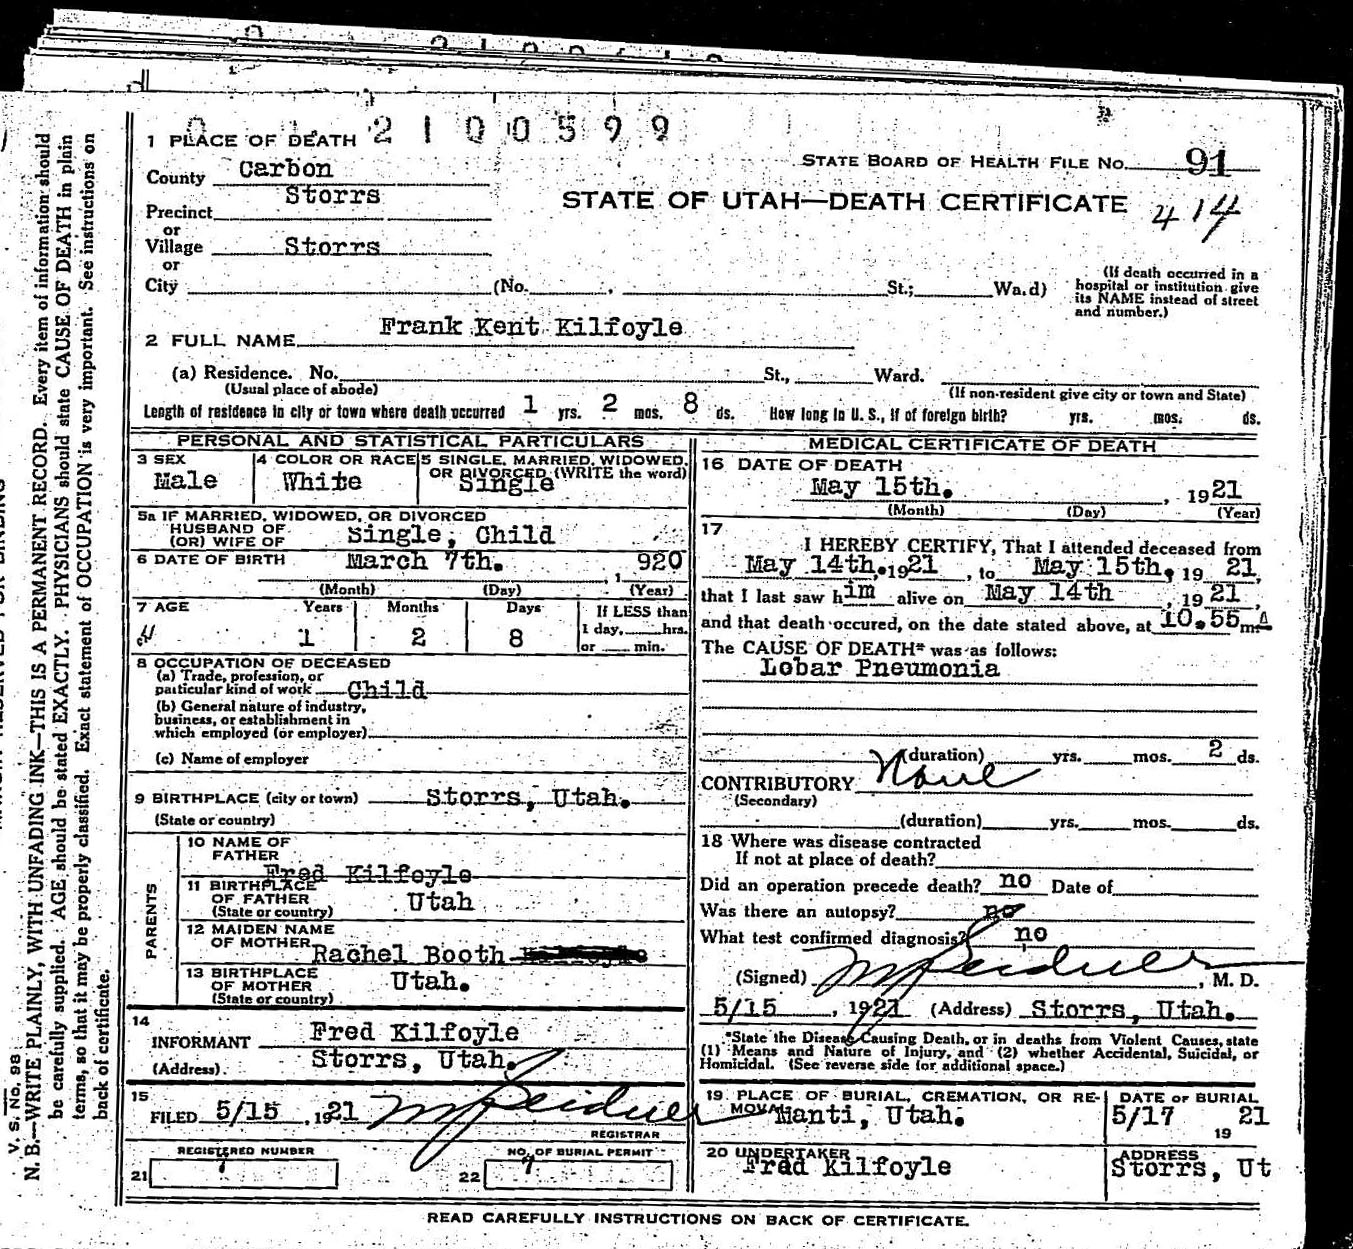 2100599
1 PLACE OF DEATH
STATE BOARD OF HEALTH FILE No. 91
County Carbon
STATE OF UTAH—DEATH CERTIFICATE
414
Precinct Storrs
or
Village Storrs
or
City (No. , St.; Wa.d)
(If death occurred in a
hospital or institution give
its NAME instead of street
and number.)
2 FULL NAME Frank Kent Kilfoyle
(a) Residence. No. St., Ward.
(Usual place of abode) (If non-resident give city or town and State)
Length of residence in city or town where death occurred 1 yrs. 2 mos. 8 ds. How long in U. S., if of foreign birth? yrs. mos. ds.
PERSONAL AND STATISTICAL PARTICULARS
3 SEX 4 COLOR OR RACE 5 SINGLE, MARRIED, WIDOWED,
OR DIVORCED (WRITE the word)
Male White Single
5a IF MARRIED, WIDOWED, OR DIVORCED
HUSBAND OF
(OR) WIFE OF Single, Child
6 DATE OF BIRTH March 7th. , 1 920
(Month) (Day) (Year)
7 AGE Years Months Days If LESS than
1 2 8 1 day, hrs.
or min.
8 OCCUPATION OF DECEASED
(a) Trade, profession, or
particular kind of work Child
(b) General nature of industry,
business, or establishment in
which employed (or employer)
(c) Name of employer
9 BIRTHPLACE (city or town) Storrs, Utah.
(State or country)
PARENTS
10 NAME OF
FATHER
Fred Kilfoyle
11 BIRTHPLACE
OF FATHER Utah
(State or country)
12 MAIDEN NAME
OF MOTHER Rachel Booth
13 BIRTHPLACE
OF MOTHER Utah.
(State or country)
14
INFORMANT Fred Kilfoyle
(Address) Storrs, Utah.
15
FILED 5/15 , 1921
REGISTRAR
REGISTERED NUMBER NO. OF BURIAL PERMIT
21 22
MEDICAL CERTIFICATE OF DEATH
16 DATE OF DEATH
May 15th. , 1921
(Month) (Day) (Year)
17
I HEREBY CERTIFY, That I attended deceased from
May 14th. 1921 , to May 15th, 19 21,
that I last saw him alive on May 14th , 19 21,
and that death occured, on the date stated above, at 10.55 m A
The CAUSE OF DEATH* was as follows:
Lobar Pneumonia
(duration) yrs. mos. 2 ds.
CONTRIBUTORY None
(Secondary)
(duration) yrs. mos. ds.
18 Where was disease contracted
If not at place of death?
Did an operation precede death? no Date of
Was there an autopsy? no
What test confirmed diagnosis? no
(Signed) , M. D.
5/15 , 1921 (Address) Storrs, Utah.
*State the Disease Causing Death, or in deaths from Violent Causes, state
(1) Means and Nature of Injury, and (2) whether Accidental, Suicidal, or
Homicidal. (See reverse side for additional space.)
19 PLACE OF BURIAL, CREMATION, OR RE-
MOVAL Manti, Utah.
DATE OF BURIAL
5/17 19 21
20 UNDERTAKER
Fred Kilfoyle
ADDRESS
Storrs, Ut
READ CAREFULLY INSTRUCTIONS ON BACK OF CERTIFICATE.
V. S. No. 98
N. B.—WRITE PLAINLY, WITH UNFADING INK—THIS IS A PERMANENT RECORD. Every item of information should
be carefully supplied. AGE should be stated EXACTLY. PHYSICIANS should state CAUSE OF DEATH in plain
terms, so that it may be properly classified. Exact statement of OCCUPATION is very important. See instructions on
back of certificate.